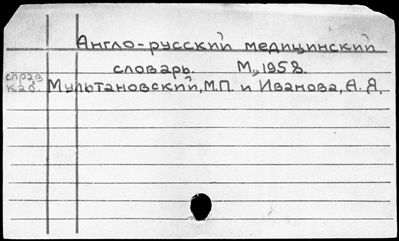 Англо-русский медицинский
словарь. М., 1958.
справ
каб. Мультановский, М.П. и Иванова, А. Я.